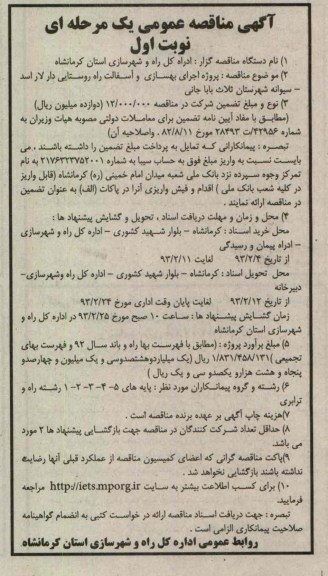 آگهی مناقصه عمومی یک مرحله ای
نوبت اول
۱) نام دستگاه مناقصه گزار : ادراه کل راه و شهرسازی استان کرمانشاه
۲) مو ضوع مناقصه : پروژه اجرای بهسازی و آسفالت راه روستایی دار لار اسد
– سیوانه شهرستان ثلاث بابا جانی
۳) نوع و مبلغ تضمین شرکت در مناقصه ۱۲/۰۰۰/۰۰۰ (دوازده میلیون ریال)
(مطابق با مفاد آیین نامه تضمین برای معاملات دولتی مصوبه هیات وزیران به
شماره ۴۲۹۵۶/ت ۲۸۴۹۳ مورخ ۸۲/۸/۱۱ . واصلاحیه آن)
تبصره : پیمانکارانی که تمایل به پرداخت مبلغ تضمین را داشته باشند ، می
بایست نسبت به واریز مبلغ فوق به حساب سیبا به شماره ۲۱۷۶۴۲۳۷۵۲۰۰۱ به نام
تمرکز وجوه سپرده نزد بانک ملی شعبه میدان امام خمینی (ره) کرمانشاه (قابل واریز
در کلیه شعب بانک ملی ) اقدام و فیش واریزی آنرا در پاکات (الف) به عنوان تضمین
در مناقصه ارائه نمایند .
۴) محل و زمان و مهلت دریافت اسناد ، تحویل و گشایش پیشنهاد ها :
محل خرید اسناد : کرمانشاه – بلوار شهید کشوری – اداره کل راه و شهرسازی
– ادراه پیمان و رسیدگی
از تاریخ ۹۳/۲/۴ لغایت ۹۳/۲/۱۱
محل تحویل اسناد : کرمانشاه – بلوار شهید کشوری – اداره کل راه وشهرسازی–
دبیرخانه
از تاریخ ۹۳/۲/۱۲ لغایت پایان وقت اداری مورخ ۹۳/۲/۲۴
زمان گشایش پیشنهاد ها : ساعت ۱۰ صبح مورخ ۹۳/۲/۲۵ در اداره کل راه و
شهرسازی استان کرمانشاه
۵) مبلغ برآورد پروژه : (مطابق با فهرست بها راه و باند سال ۹۲ و فهرست بهای
تجمیعی )۱/۸۳۱/۴۵۸/۱۳۱ ریال (یک میلیاردوهشتصدوسی و یک میلیون و چهارصدو
پنجاه و هشت هزارو یکصدو سی و یک ریال )
۶) رشته و گروه پیمانکاران مورد نظر : پایه های ۵- ۴- ۳- ۲- ۱ رشته راه و
ترابری
۷)هزینه چاپ آگهی بر عهده برنده مناقصه است .
۸) حداقل تعداد شرکت کنندگان در مناقصه جهت بازگشایی پیشنهاد ها ۲ مورد
می باشد.
۹)پاکت مناقصه گرانی که اعضای کمیسیون مناقصه از عملکرد قبلی آنها رضایت
نداشته باشند بازگشایی نخواهد شد .
۱۰) برای کسب اطلاعت بیشتر به سایت http://iets.mporg.ir مراجعه
فرمایید.
تبصره : جهت دریافت اسناد مناقصه ارائه در خواست کتبی به انضمام گواهینامه
صلاحیت پیمانکاری الزامی است .
روابط عمومی اداره کل راه و شهرسازی استان کرمانشاه